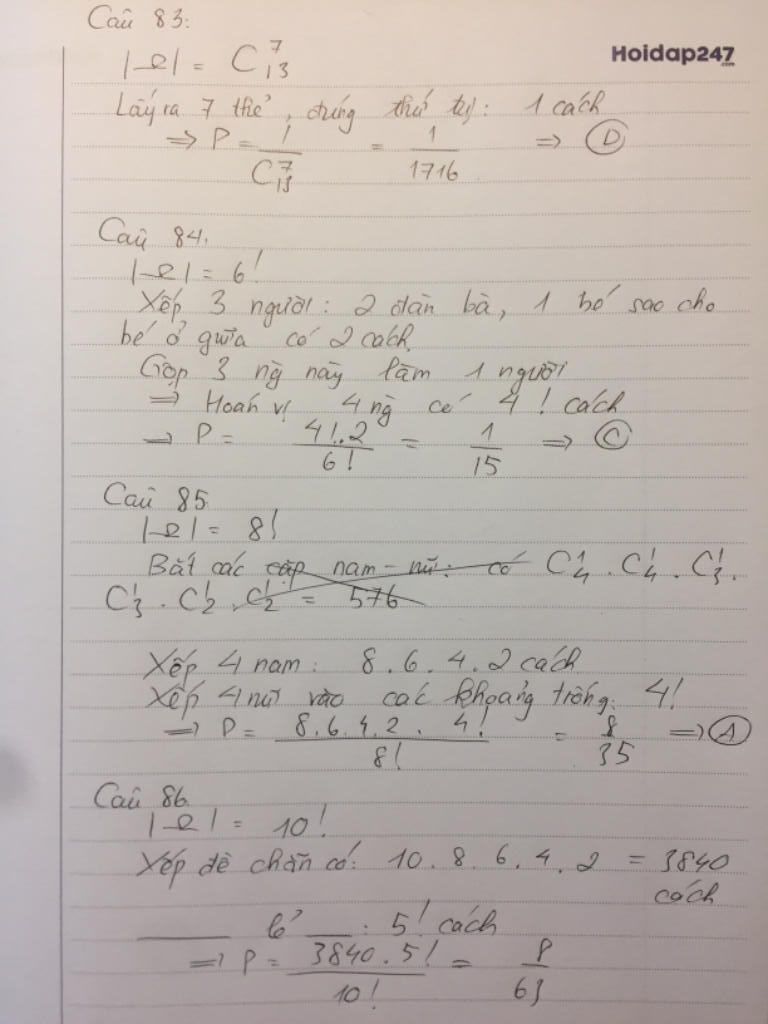 Câu 83:
Hoidap247
.com
|Ω| = C₁₃⁷
Lấy ra 7 thẻ, đúng thứ tự: 1 cách
=> P = 1/C₁₃⁷ = 1/1716 => D
Câu 84.
|Ω| = 6!
Xếp 3 người: 2 đàn bà, 1 bé sao cho
bé ở giữa có 2 cách
Gộp 3 ng này làm 1 người
=> Hoán vị 4 ng có 4! cách
=> P = 4!.2/6! = 1/15 => C
Câu 85
|Ω| = 8!
Bắt các cặp nam - nữ: có C₄¹ . C₄¹ . C₃¹ .
C₃¹ . C₂¹ . C₂¹ = 576
Xếp 4 nam: 8.6.4.2 cách
Xếp 4 nữ vào các khoảng trống: 4!
=> P = 8.6.4.2.4!/8! = 8/35 => A
Câu 86
|Ω| = 10!
Xếp đề chẵn có: 10.8.6.4.2 = 3840
cách
___ lẻ ___: 5! cách
=> P = 3840.5!/10! = 8/63